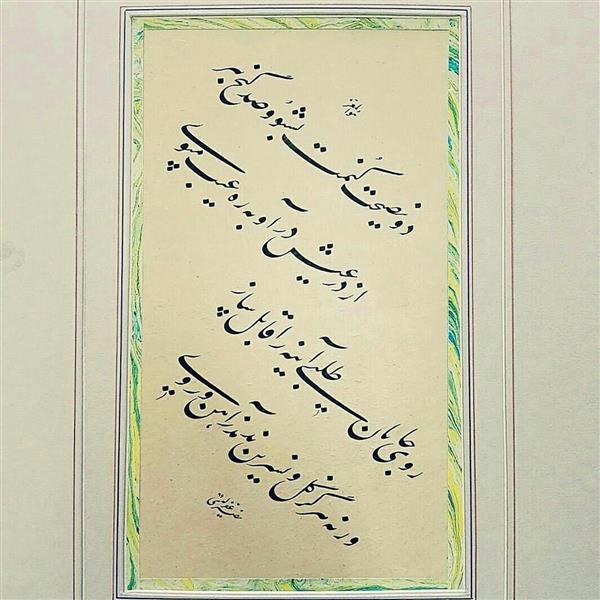 دو نصیحت کنمت بشنو و صد گنج ببر
از در عیش درآ و به ره عیب مپوی
روی جانان طلبی آینه را قابل ساز
ورنه هرگز گل و نسرین ندمد ز آهن و روی